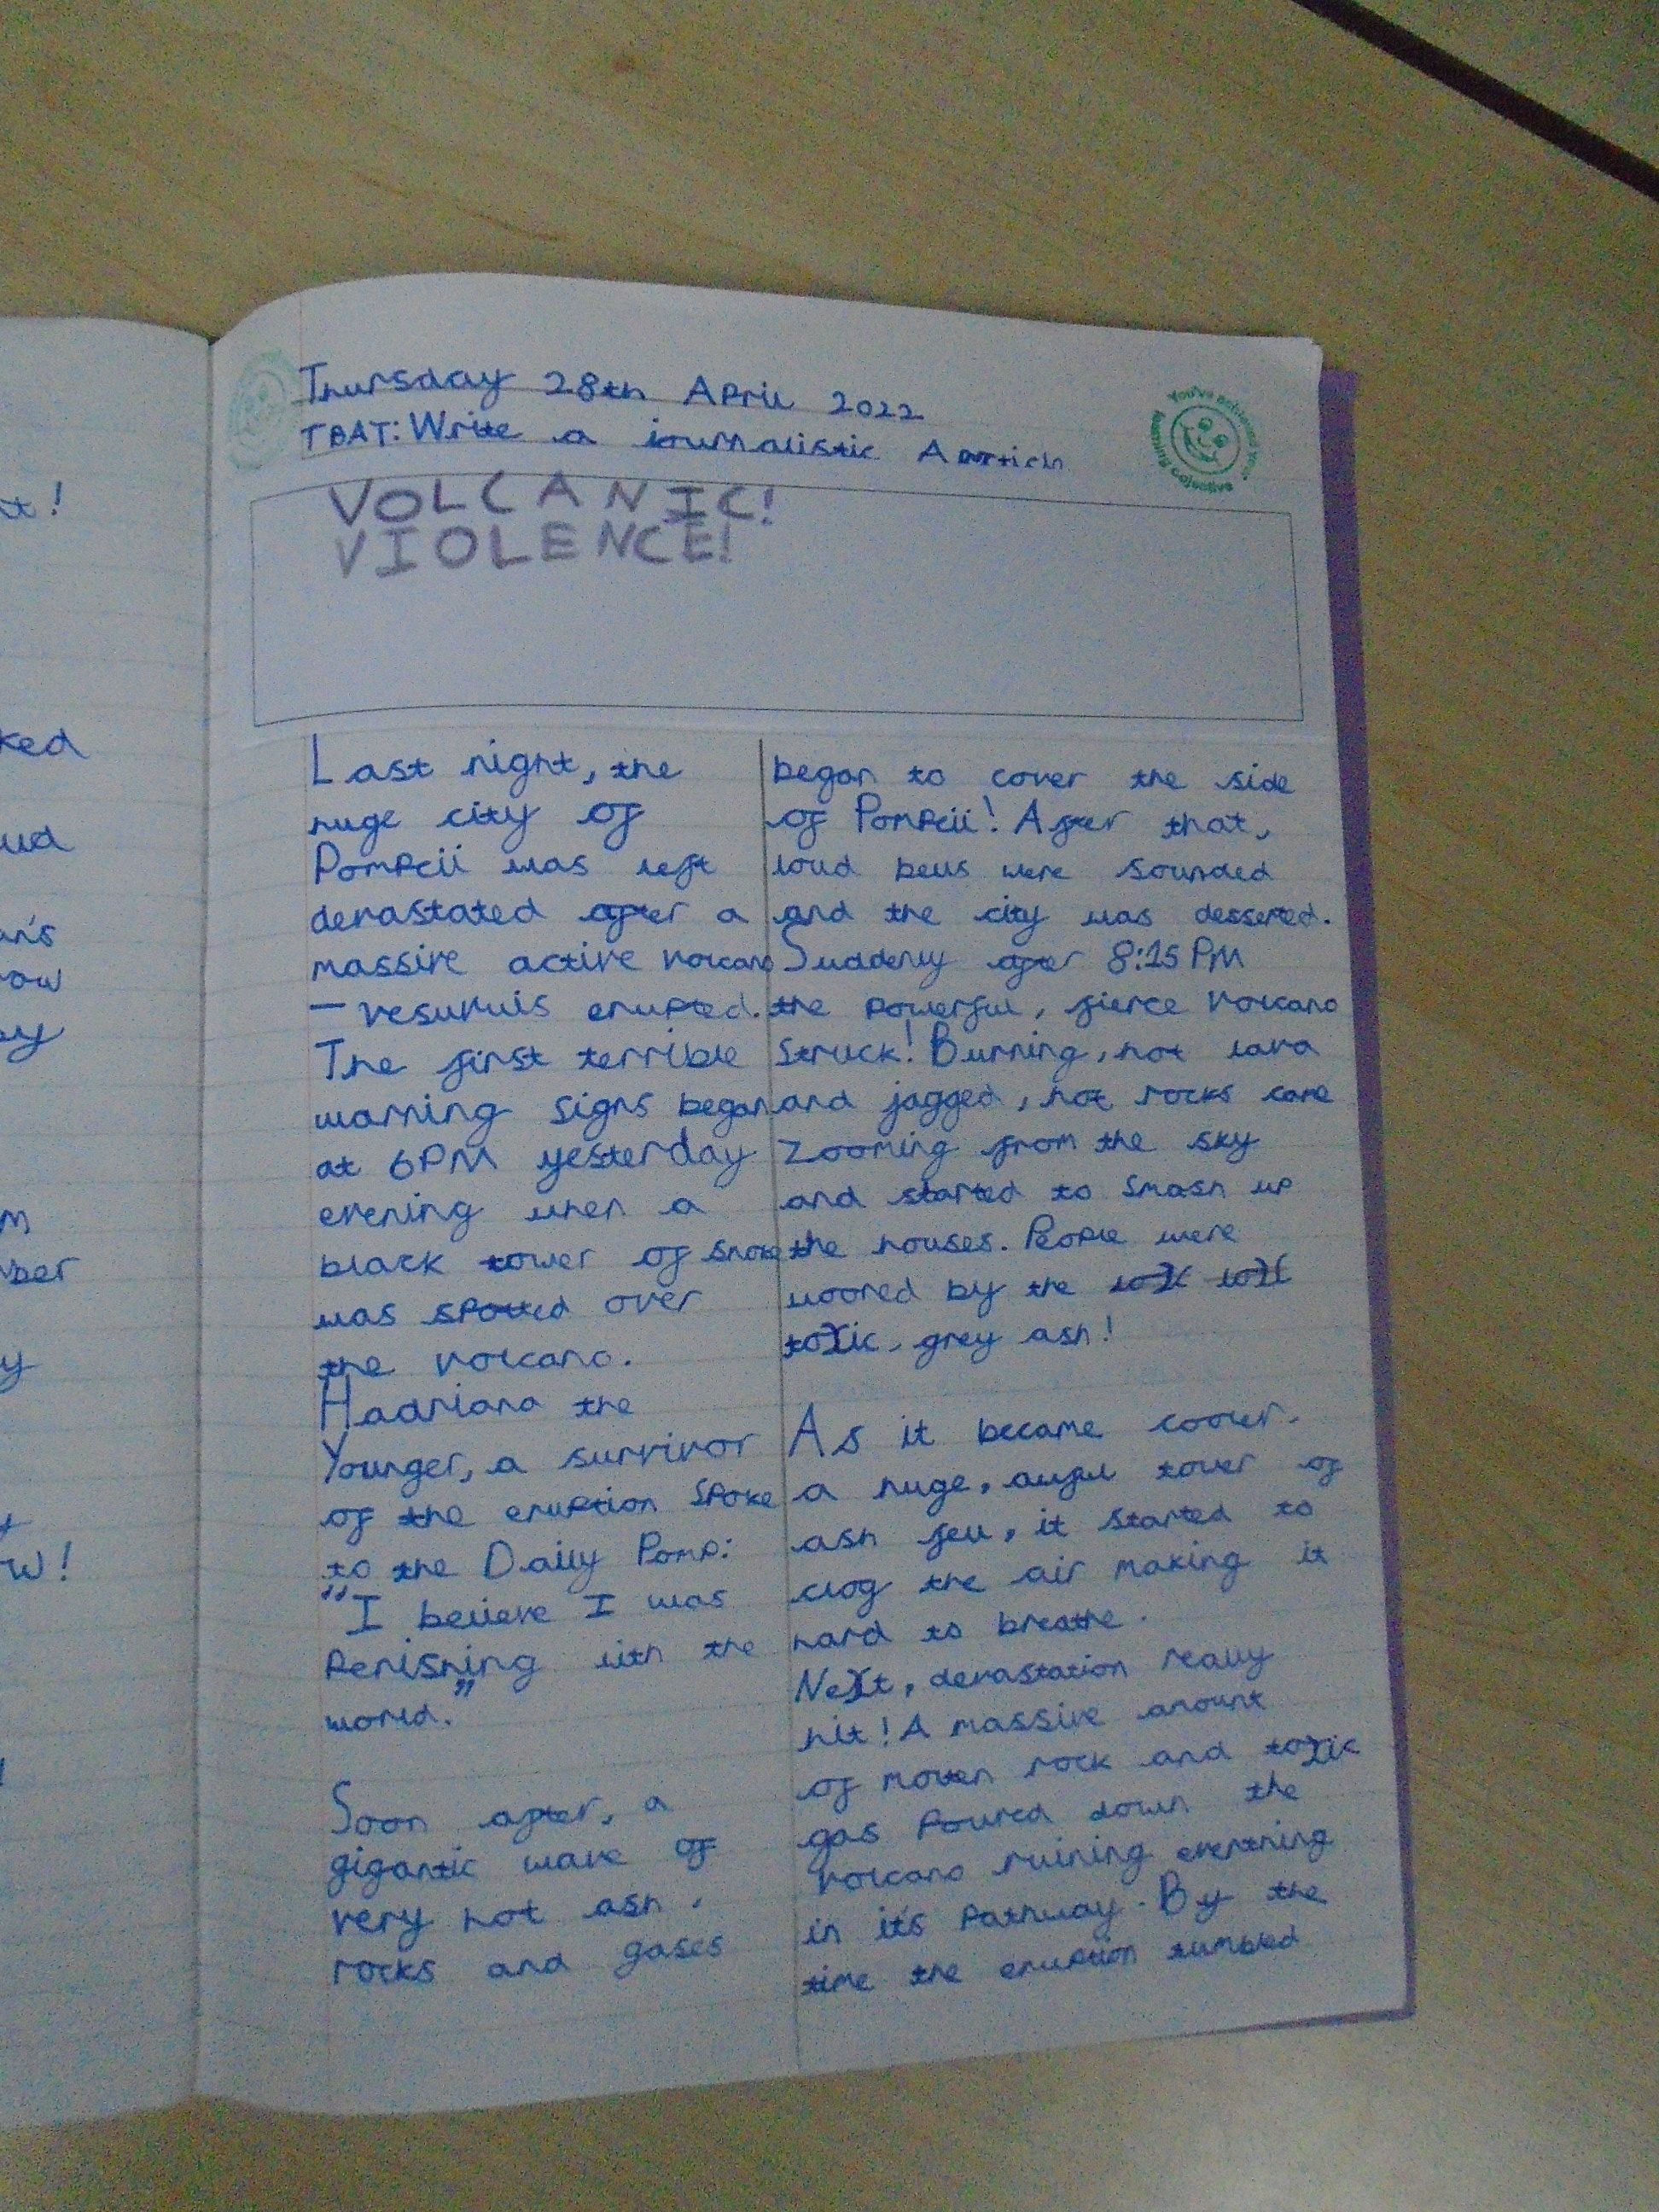 Thursday 28th April 2022
TBAT: Write a journalistic Aarticle
You've achieved your learning objective
VOLCANIC!
VIOLENCE!
Last night, the
huge city of
Pompeii was left
devastated after a
massive active volcano
— vesuvuis erupted.
The first terrible
warning signs began
at 6PM yesterday
evening when a
black tower of smoke
was spotted over
the volcano.
Hadriana the
Younger, a survivor
of the eruption spoke
to the Daily Pomp:
"I believe I was
perishing with the
world."
Soon after, a
gigantic wave of
very hot ash,
rocks and gases
began to cover the side
of Pompeii! After that,
loud bells were sounded
and the city was desserted.
Suddenly after 8:15PM
the powerful, fierce volcano
struck! Burning, hot lava
and jagged, hot rocks came
zooming from the sky
and started to smash up
the houses. People were
by the
toxic, grey ash!
As it became cooler,
a huge, awful tower of
ash fell, it started to
clog the air making it
hard to breathe.
Next, devastation really
hit! A massive amount
of molten rock and toxic
gas poured down the
volcano ruining everthing
in it's pathway. By the
time the eruption tumbled
t!
ked
ud
an's
ow
ey
m
ber
y
w!